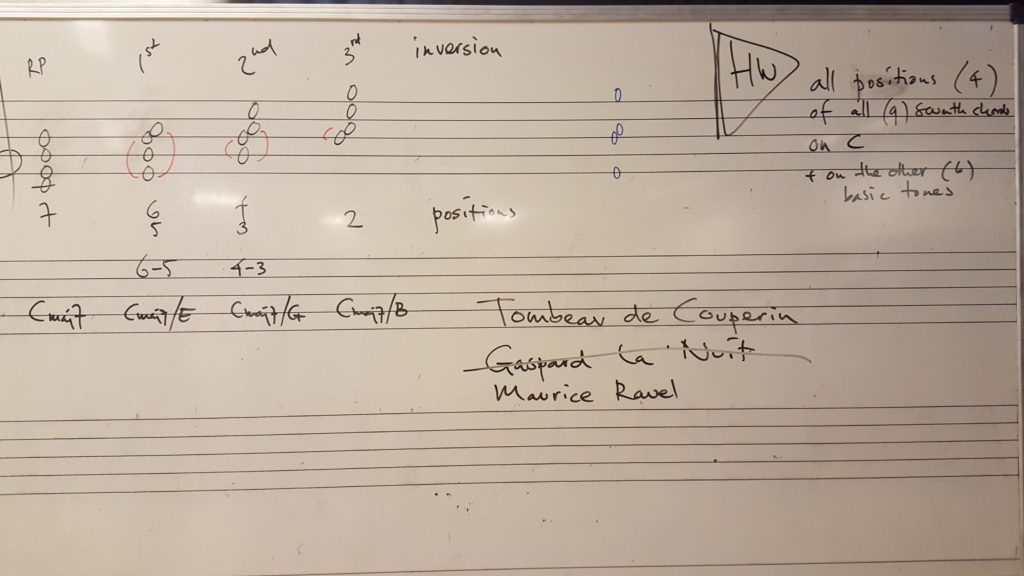 RP 1st 2nd 3rd inversion
7 6 4 2 positions
5 3
6-5 4-3
Cmaj7 Cmaj7/E Cmaj7/G Cmaj7/B
HW
all positions (4)
of all (9) seventh chords
on C
+ on the other (6)
basic tones
Tombeau de Couperin
Gaspard La Nuit
Maurice Ravel